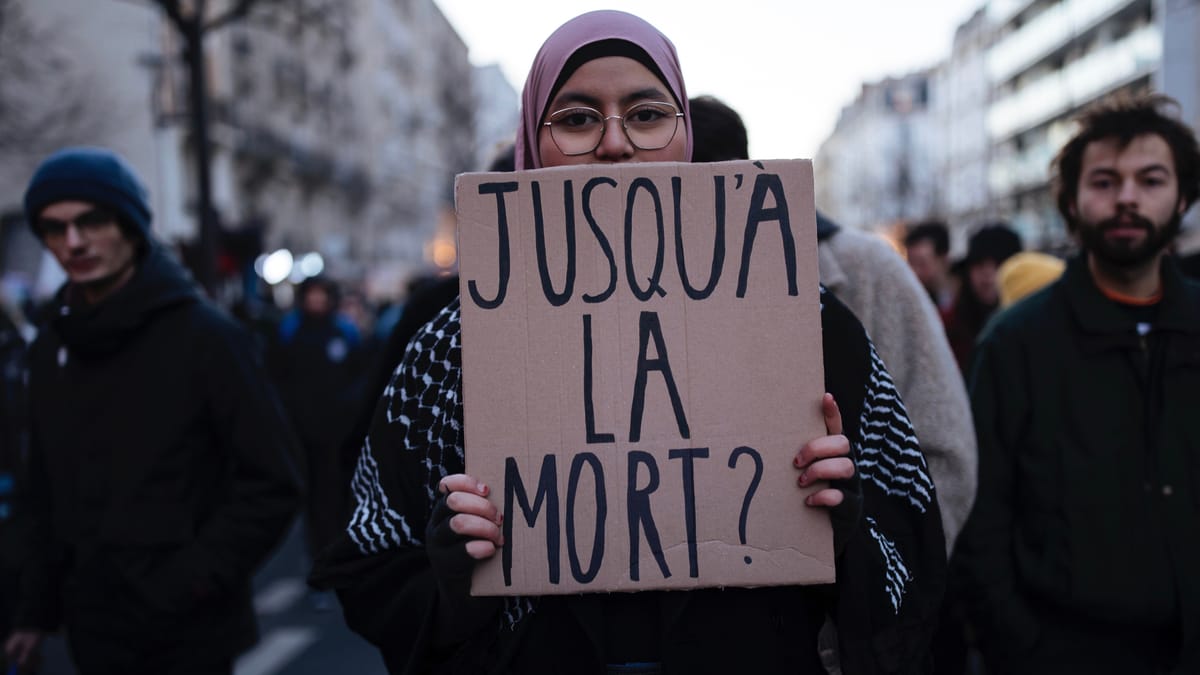 JUSQU'À
LA
MORT?